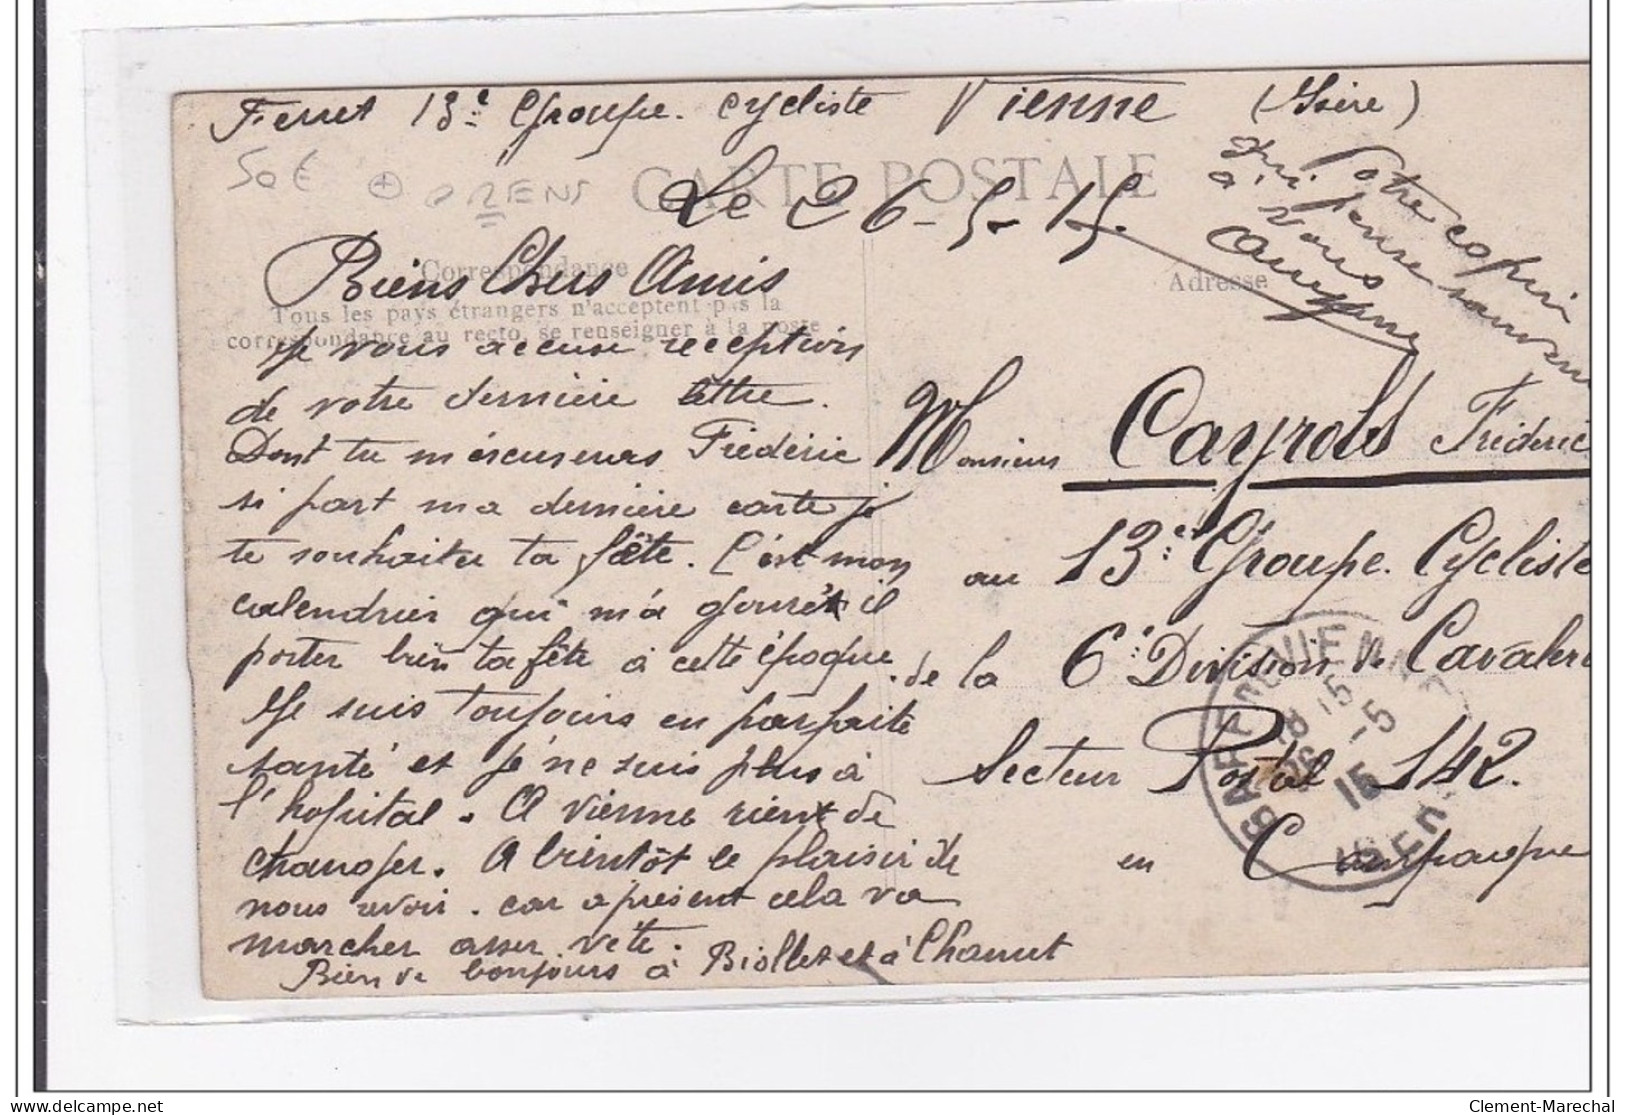 Ferret 13e Groupe cycliste Vienne (Isère)
50€ ORENS
CARTE POSTALE
Le 26-5-15.
Votre copain
qui pense souvent
à vous
Correspondance
Adresse
Tous les pays étrangers n'acceptent pas la
correspondance au recto, se renseigner à la poste
Biens Chers Amis
Je vous accuse reception
de votre dernière lettre.
Dont tu m'escuseras Frédéric
si part ma dernière carte je
te souhaiter ta fête. C'est mon
calendrier qui m'a il
porter bien ta fête à cette époque.
Je suis toujours en parfaite
santé et je ne suis plus à
l'hopital. A Vienne rient de
changer. A bientôt le plaisir de
nous revoir. car apresent cela va
marcher asser vite.
Bien de bonjours à Biollet et à Chamut
Monsieur Cayrols Frédéric
au 13e Groupe Cycliste
de la 6e Division de Cavalerie
Secteur Postal 142.
en Campagne
GARE DE VIENNE
15
-5
15
Clement-Marechal